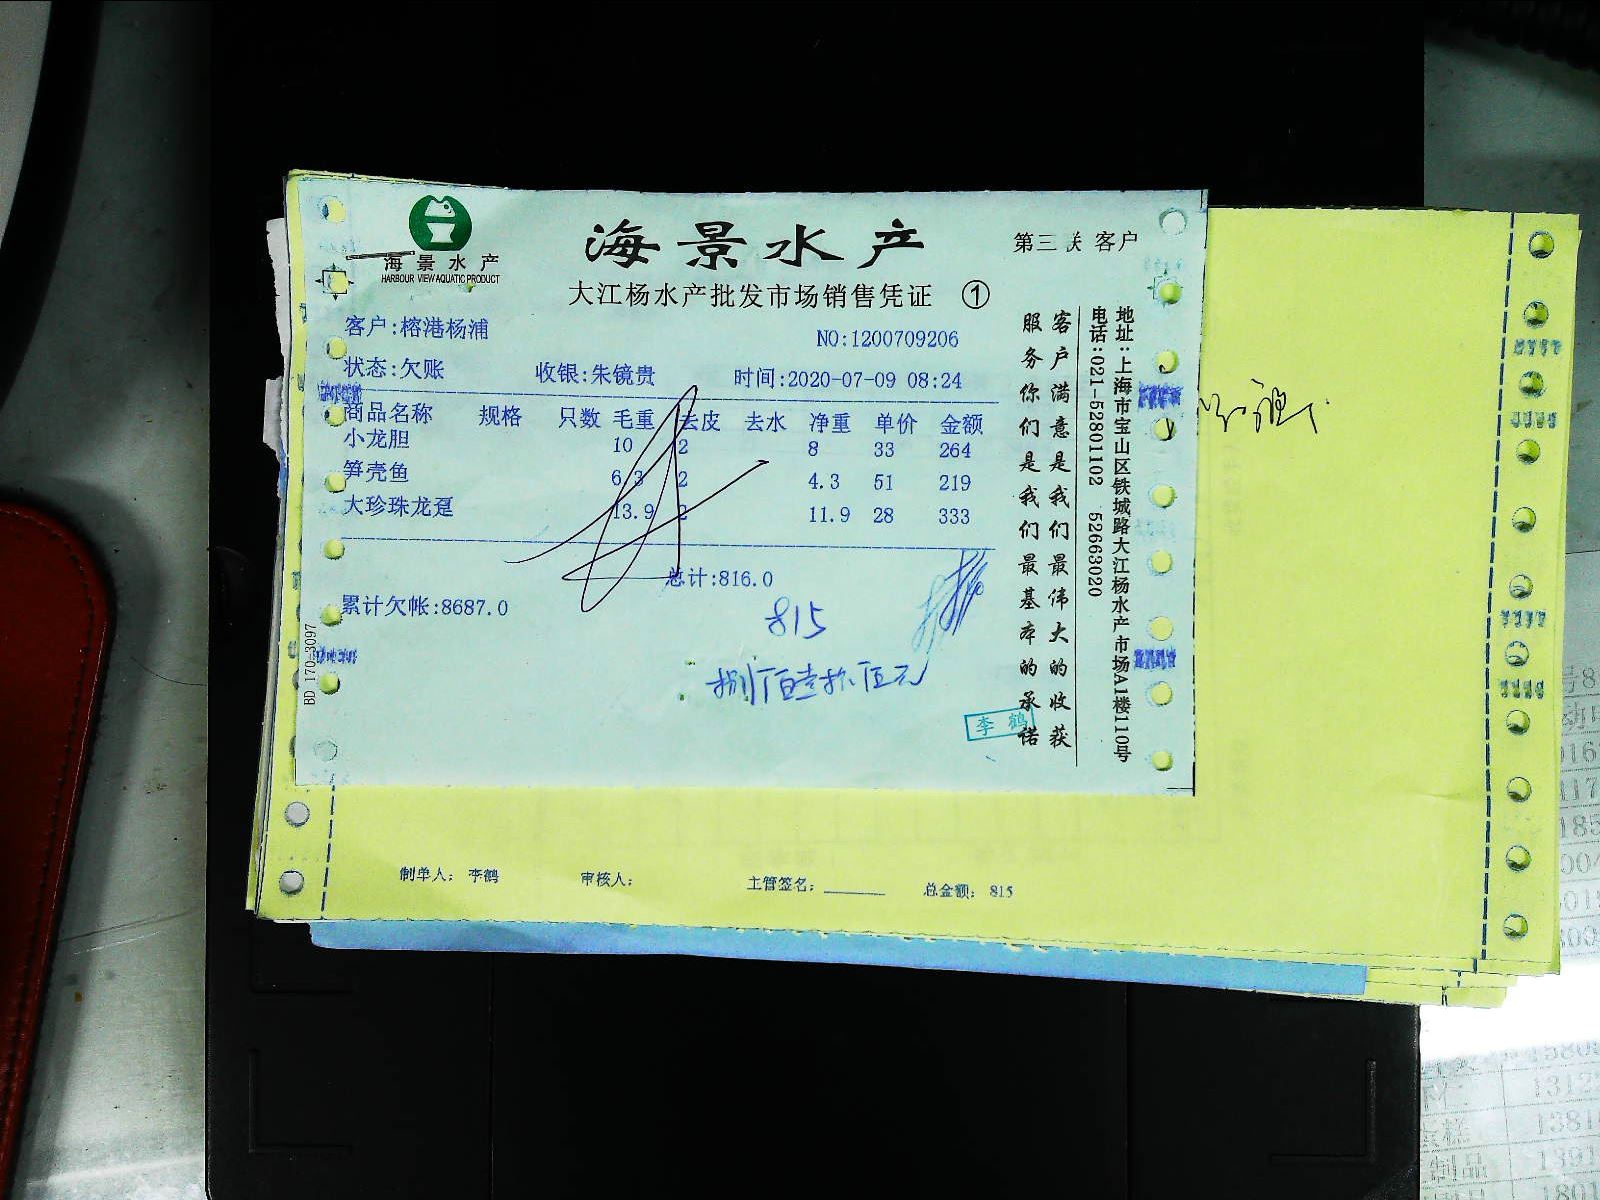 海景水产
HARBOUR VIEW AQUATIC PRODUCT
海景水产
第三联 客户
大江杨水产批发市场销售凭证 ①
客户:榕港杨浦
NO:1200709206
状态:欠账 收银:朱镜贵 时间:2020-07-09 08:24
商品名称 规格 只数 毛重 去皮 去水 净重 单价 金额
小龙胆 10 2 8 33 264
笋壳鱼 6.3 2 4.3 51 219
大珍珠龙趸 13.9 2 11.9 28 333
总计:816.0
累计欠帐:8687.0
815
捌佰壹拾伍元
李鹤
客户满意是我们最伟大的收获
服务你们是我们最基本的承诺
地址:上海市宝山区铁城路大江杨水产市场A1楼110号
电话:021-52801102 52663020
BD 170-3097
制单人: 李鹤 审核人: 主管签名: 总金额: 815